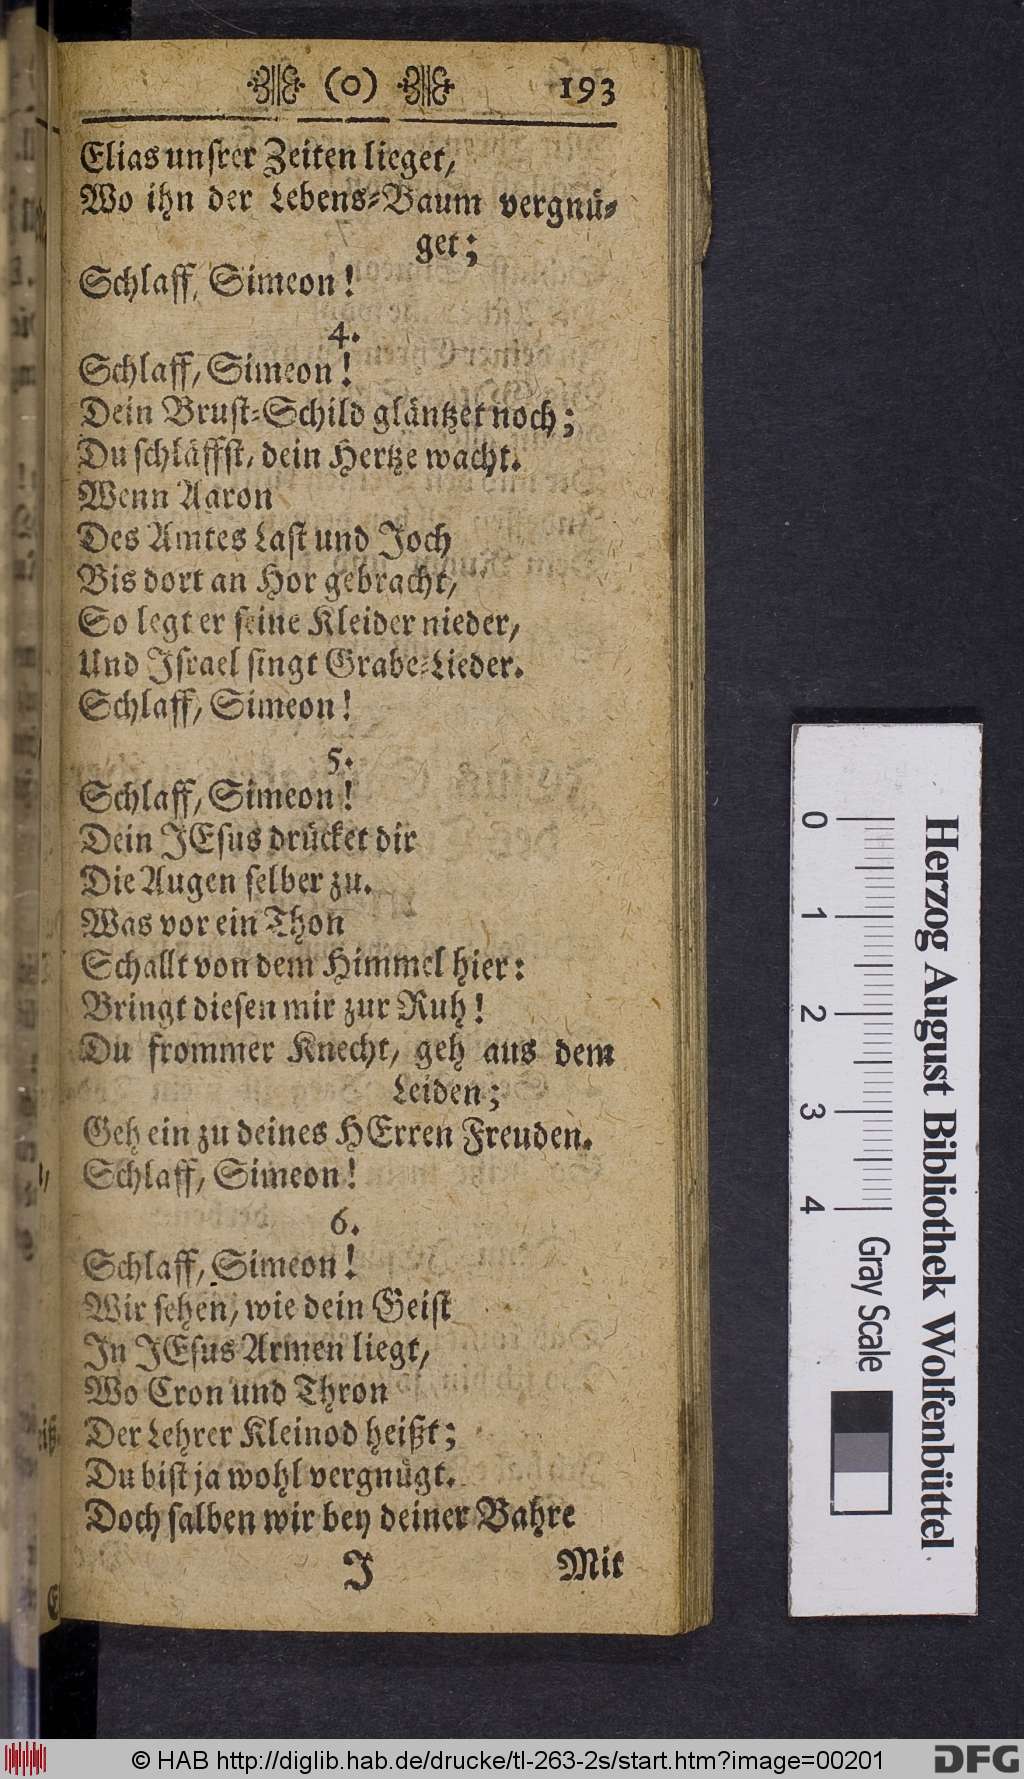 (o) 193
Elias unsrer Zeiten lieget,
Wo ihn der Lebens-Baum vergnü-
get;
Schlaff, Simeon!
4.
Schlaff, Simeon!
Dein Brust-Schild gläntzet noch;
Du schläffst, dein Hertze wacht.
Wenn Aaron
Des Amtes Last und Joch
Bis dort an Hor gebracht,
So legt er seine Kleider nieder,
Und Israel singt Grabe-Lieder.
Schlaff, Simeon!
5.
Schlaff, Simeon!
Dein JEsus drücket dir
Die Augen selber zu.
Was vor ein Thon
Schallt von dem Himmel hier:
Bringt diesen mir zur Ruh!
Du frommer Knecht, geh aus dem
Leiden;
Geh ein zu deines HErren Freuden.
Schlaff, Simeon!
6.
Schlaff, Simeon!
Wir sehen, wie dein Geist
In JEsus Armen liegt,
Wo Cron und Thron
Der Lehrer Kleinod heißt;
Du bist ja wohl vergnügt.
Doch salben wir bey deiner Bahre
J Mit
Herzog August Bibliothek Wolfenbüttel
0 1 2 3 4 Gray Scale
© HAB http://diglib.hab.de/drucke/tl-263-2s/start.htm?image=00201
DFG